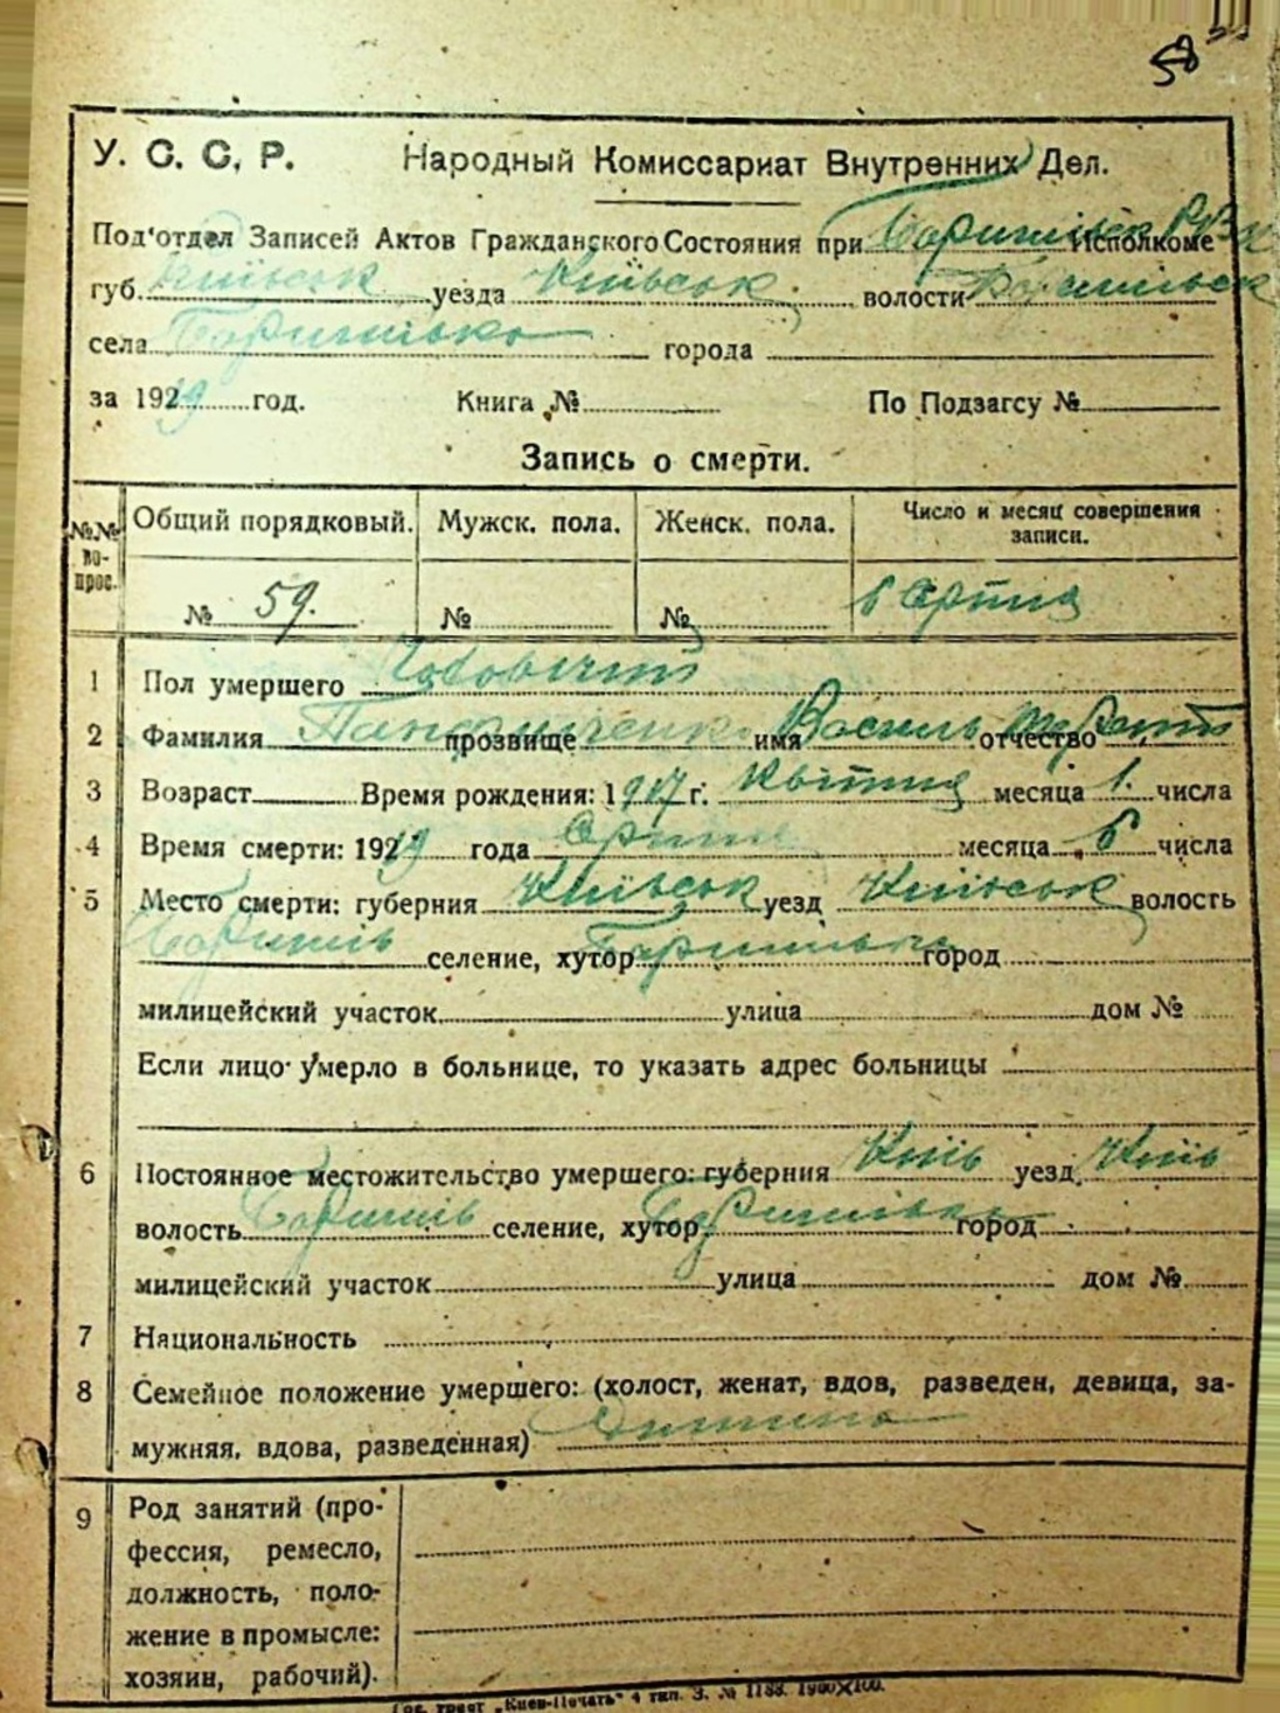 58
У. С. С. Р. Народный Комиссариат Внутренних Дел.
Под'отдел Записей Актов Гражданского Состояния при Исполкоме
губ. Київськ уезда Київськ волости
села города
за 1929 год. Книга № По Подзагсу №
Запись о смерти.
№№ во-прос. Общий порядковый. Мужск. пола. Женск. пола. Число и месяц совершения записи.
№ 59. № № 6 Серпня
1 Пол умершего Чоловічий
2 Фамилия прозвище имя Василь отчество
3 Возраст Время рождения: 19 г. Квітня месяца 1. числа
4 Время смерти: 1929 года Серпня месяца 6 числа
5 Место смерти: губерния Київськ уезд Київськ волость
селение, хутор город
милицейский участок улица дом №
Если лицо умерло в больнице, то указать адрес больницы
6 Постоянное местожительство умершего: губерния Київ уезд Київ
волость селение, хутор город
милицейский участок улица дом №
7 Национальность
8 Семейное положение умершего: (холост, женат, вдов, разведен, девица, за-
мужняя, вдова, разведенная) Дитина
9 Род занятий (про-
фессия, ремесло,
должность, поло-
жение в промысле:
хозяин, рабочий).
Гос. трест „Киев-Печать" 4 тип. З. № 1183.